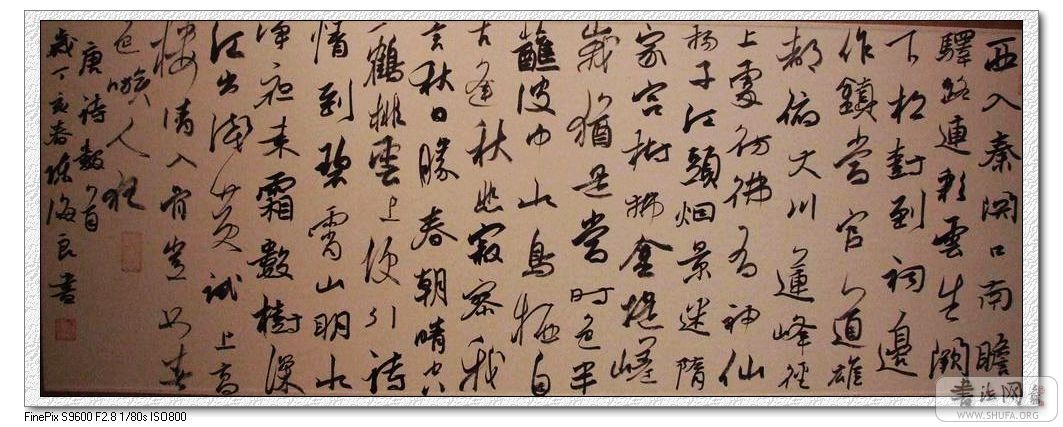 西入秦關口南瞻
驛路連彩雲生闕
下松樹到祠邊
作鎮當官道雄
都俯大川蓮峰徑
上處仿佛有神仙
揚子江頭烟景迷隋
家宮樹拂金堤嵯
峨猶是當時色半
蘸波中水鳥栖自
古逢秋悲寂寥我
言秋日勝春朝晴空
一鶴排雲上便引詩
情到碧霄山明水
净夜來霜數樹深
紅出淺黄試上高
樓清入骨豈如春
色嗾人狂
唐詩數首
歲丁亥春海良書
FinePix S9600 F2.8 1/80s ISO800
書法网
WWW.SHUFA.ORG